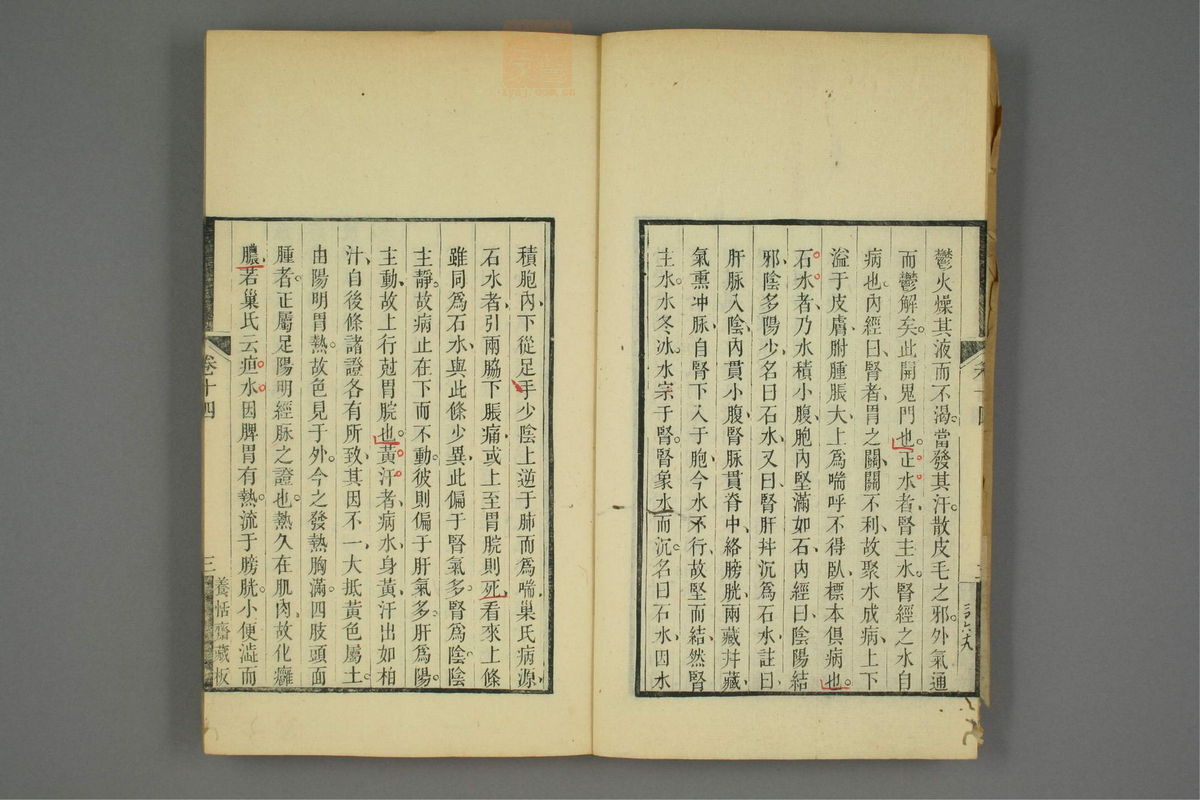 鬱火燥其液而不渴當發其汗散皮毛之邪外氣通
而鬱解矣此開鬼門也正水者腎主水腎經之水自
病也內經曰腎者胃之關關不利故聚水成病上下
溢于皮膚胕腫脹大上爲喘呼不得臥標本俱病也
石水者乃水積小腹胞內堅滿如石內經曰陰陽結
邪陰多陽少名曰石水又曰腎肝并沉爲石水註曰
肝脉入陰內貫小腹腎脉貫脊中絡膀胱兩藏并藏
氣熏冲脉自腎下入于胞今水不行故堅而結然腎
主水水冬冰水宗于腎腎象水而沉名曰石水因水
積胞內下從足手少陰上逆于肺而爲喘巢氏病源
石水者引兩脇下脹痛或上至胃脘則死看來上條
雖同爲石水與此條少異此偏于腎氣多腎爲陰陰
主靜故病止在下而不動彼則偏于肝氣多肝爲陽
主動故上行尅胃脘也黃汗者病水身黃汗出如柏
汁自後條諸證各有所致其因不一大抵黃色屬土
由陽明胃熱故色見于外今之發熱胸滿四肢頭面
腫者正屬足陽明經脉之證也熱久在肌肉故化癰
膿若巢氏云疸水因脾胃有熱流于膀胱小便澁而
卷十四
三
養恬齋藏板